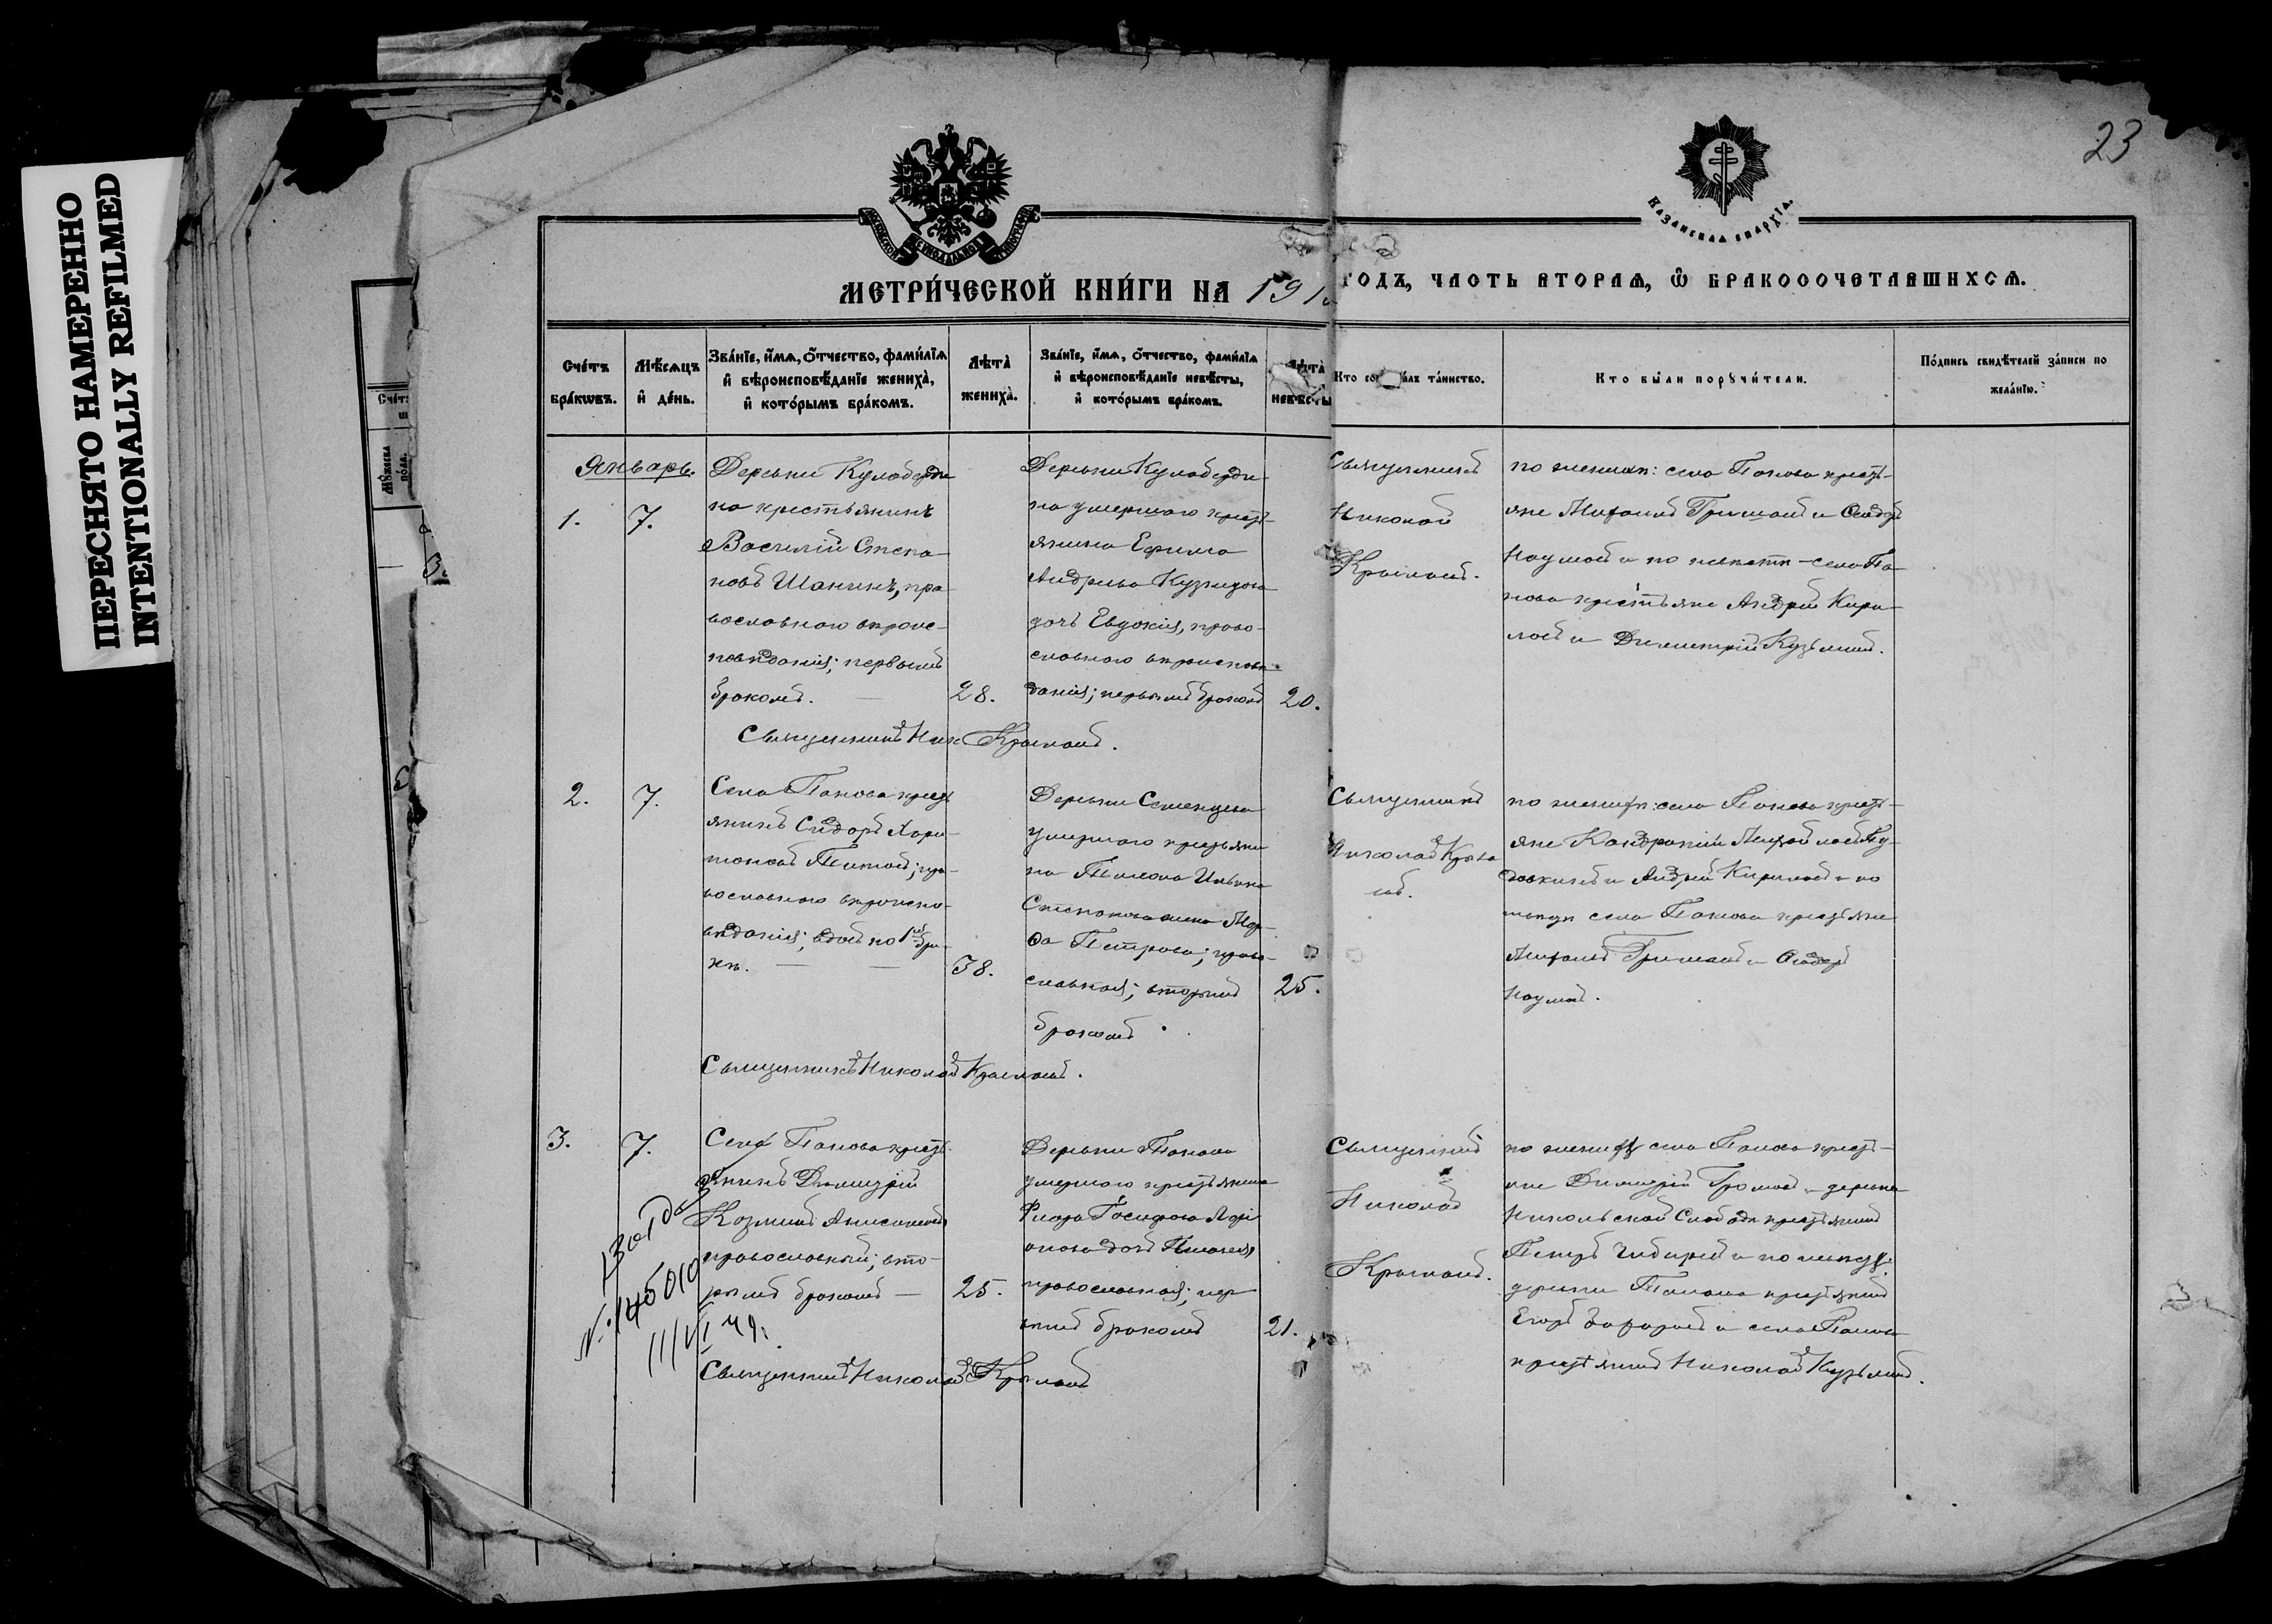 ПЕРЕСНЯТО НАМЕРЕННО
INTENTIONALLY REFILMED
23
МОСКОВСКОЙ СѴНОДАЛЬНОЙ ТИПОГРАФІИ
КАЗАНСКАЯ ЕПАРХІЯ.
МЕТРИ́ЧЕСКОЙ КНИ́ГИ НА 191
ГОДЪ, ЧАСТЬ ВТОРАЯ, Ѿ БРАКОСОЧЕТАВШИХСЯ.
Сче́тъ бра́кѡвъ.
Мѣ́сяцъ и́ де́нь.
Зва́нїе, и́мя, ѻ́тчество, фами́лїя и́ вѣроисповѣ́данїе жениха̀, и́ кото́рымъ бра́комъ.
Лѣта̀ жениха̀.
Зва́нїе, и́мя, ѻ́тчество, фами́лїя и́ вѣроисповѣ́данїе невѣ́сты, и́ кото́рымъ бра́комъ.
Лѣта̀ невѣ́сты
Кто та́инство.
Кто бы́ли порꙋчи́тели.
По́дпись свидѣ́телей за́писи по жела́нїю.
Январь.
1.
7.
Деревни Кулаберди-
на крестьянинъ
Василій Степа-
новъ Шанинъ, пра-
вославнаго вѣроис-
повѣданія; первымъ
бракомъ. —
28.
Деревни Кулаберди-
на умершаго крест-
янина Ефима
Андреева
дочь Евдокія, право-
славнаго вѣроисповѣ-
данія; первымъ бракомъ
20.
Священникъ
Николай
Крыловъ.
по женихѣ: села Панова крестъ-
яне Михаилъ Гришинъ и
Наумовъ и по невѣстѣ - села Па-
нова крестьяне Андрей Кири-
ловъ и Димитрій Кузьминъ.
Священникъ Ник Крыловъ.
2.
7.
Села Панова крест
янинъ Сидоръ Хари-
тоновъ Титовъ; пра-
вославнаго вѣроиспо-
вѣданія; вдовъ по 1мъ бра-
кѣ. — —
38.
Деревни Семенцева
умершаго крестьяни
на Ильина
Степанова жена Мар-
ѳа Петрова; право-
славная; вторымъ
бракомъ.
25.
Священникъ
Николай Крыло
въ.
по женихѣ: села Панова крестъ-
яне
Андрей Кириловъ и по
невѣстѣ села Панова крестьяне
Михаилъ Гришинъ и
Наумовъ.
Священникъ Николай Крыловъ.
3.
7.
Села Панова крестъ-
янинъ Димитрій
Козминъ Анисимовъ
православный; вто-
рымъ бракомъ —
25.
Деревни
умершаго крестьянина
дочь
православная; пер
вымъ бракомъ
21.
Священникъ
Николай
Крыловъ.
по женихѣ села Панова крестъ-
яне Димитрій Громовъ и деревни
Никольской Слободы крестьянинъ
Петръ и по невѣстѣ:
деревни крестьянинъ
Егоръ и села Панова
крестьянинъ Николай Кузьминъ.
Священникъ Николай Крыловъ
№ 145010
11/VI 49.